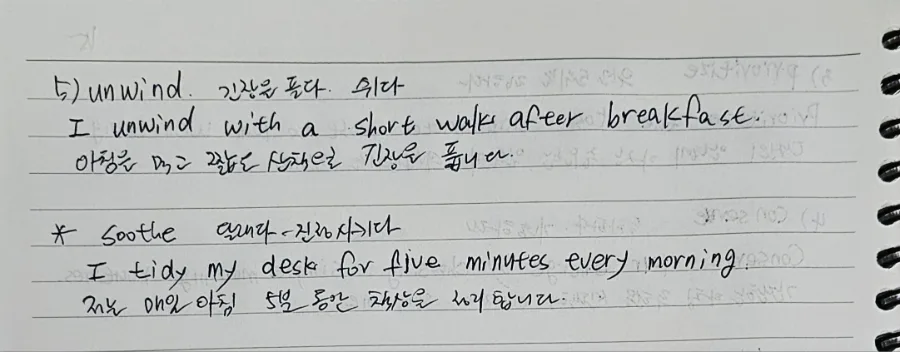 5) unwind. 긴장을 풀다. 쉬다
I unwind with a short walk after breakfast.
아침을 먹고 짧은 산책으로 긴장을 풉니다.
* soothe 달래다 - 진정시키다
I tidy my desk for five minutes every morning.
저는 매일 아침 5분 동안 책상을 정리합니다.